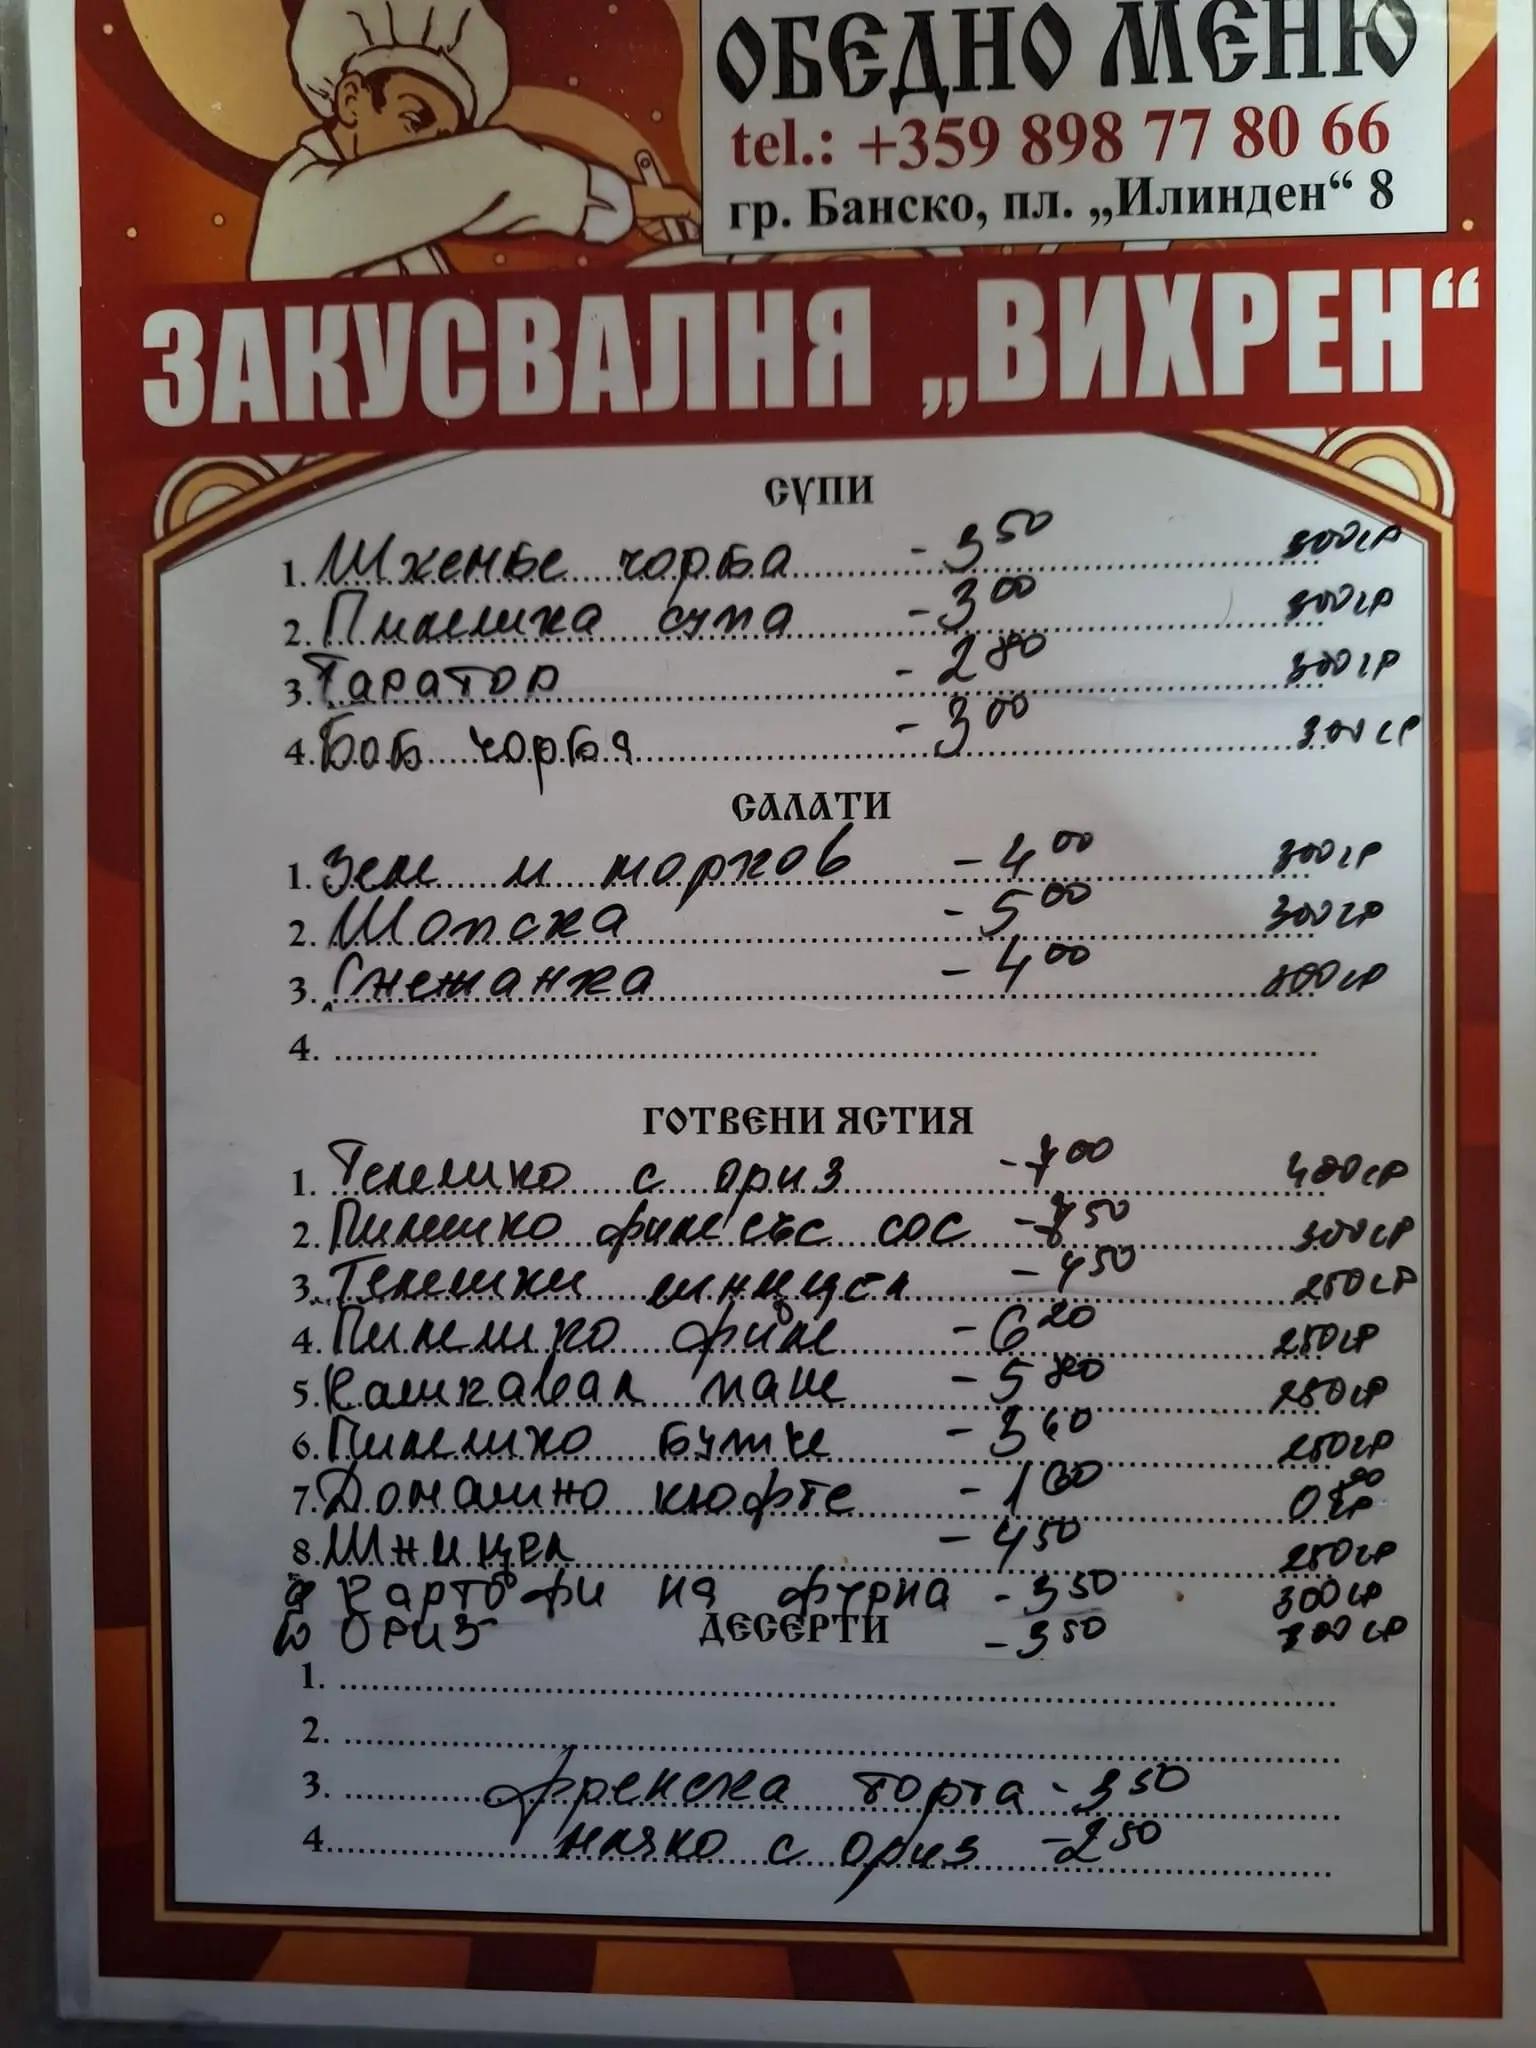 ОБЕДНО МЕНЮ
tel.: +359 898 77 80 66
гр. Банско, пл. „Илинден“ 8
ЗАКУСВАЛНЯ „ВИХРЕН“
СУПИ
1. Шкембе чорба - 3 50 300 гр
2. Пилешка супа - 3 00 300 гр
3. Таратор - 2 80 300 гр
4. Боб чорба - 3 00 300 гр
САЛАТИ
1. Зеле и морков - 4 00 300 гр
2. Шопска - 5 00 300 гр
3. Снежанка - 4 00 300 гр
4.
ГОТВЕНИ ЯСТИЯ
1. Телешко с ориз - 7 00 400 гр
2. Пилешко филе със сос - 50 300 гр
3. Телешки шницел - 4 50 250 гр
4. Пилешко филе - 6 20 250 гр
5. Кашкавал пане - 5 80 250 гр
6. Пилешко бутче - 3 60 250 гр
7. Домашно кюфте - 1 60
8. Шницел - 4 50 250 гр
9 Картофи на фурна - 3 50 300 гр
10 Ориз - 3 50 300 гр
ДЕСЕРТИ
1.
2.
3. Френска торта - 3 50
4. мляко с ориз - 2 50